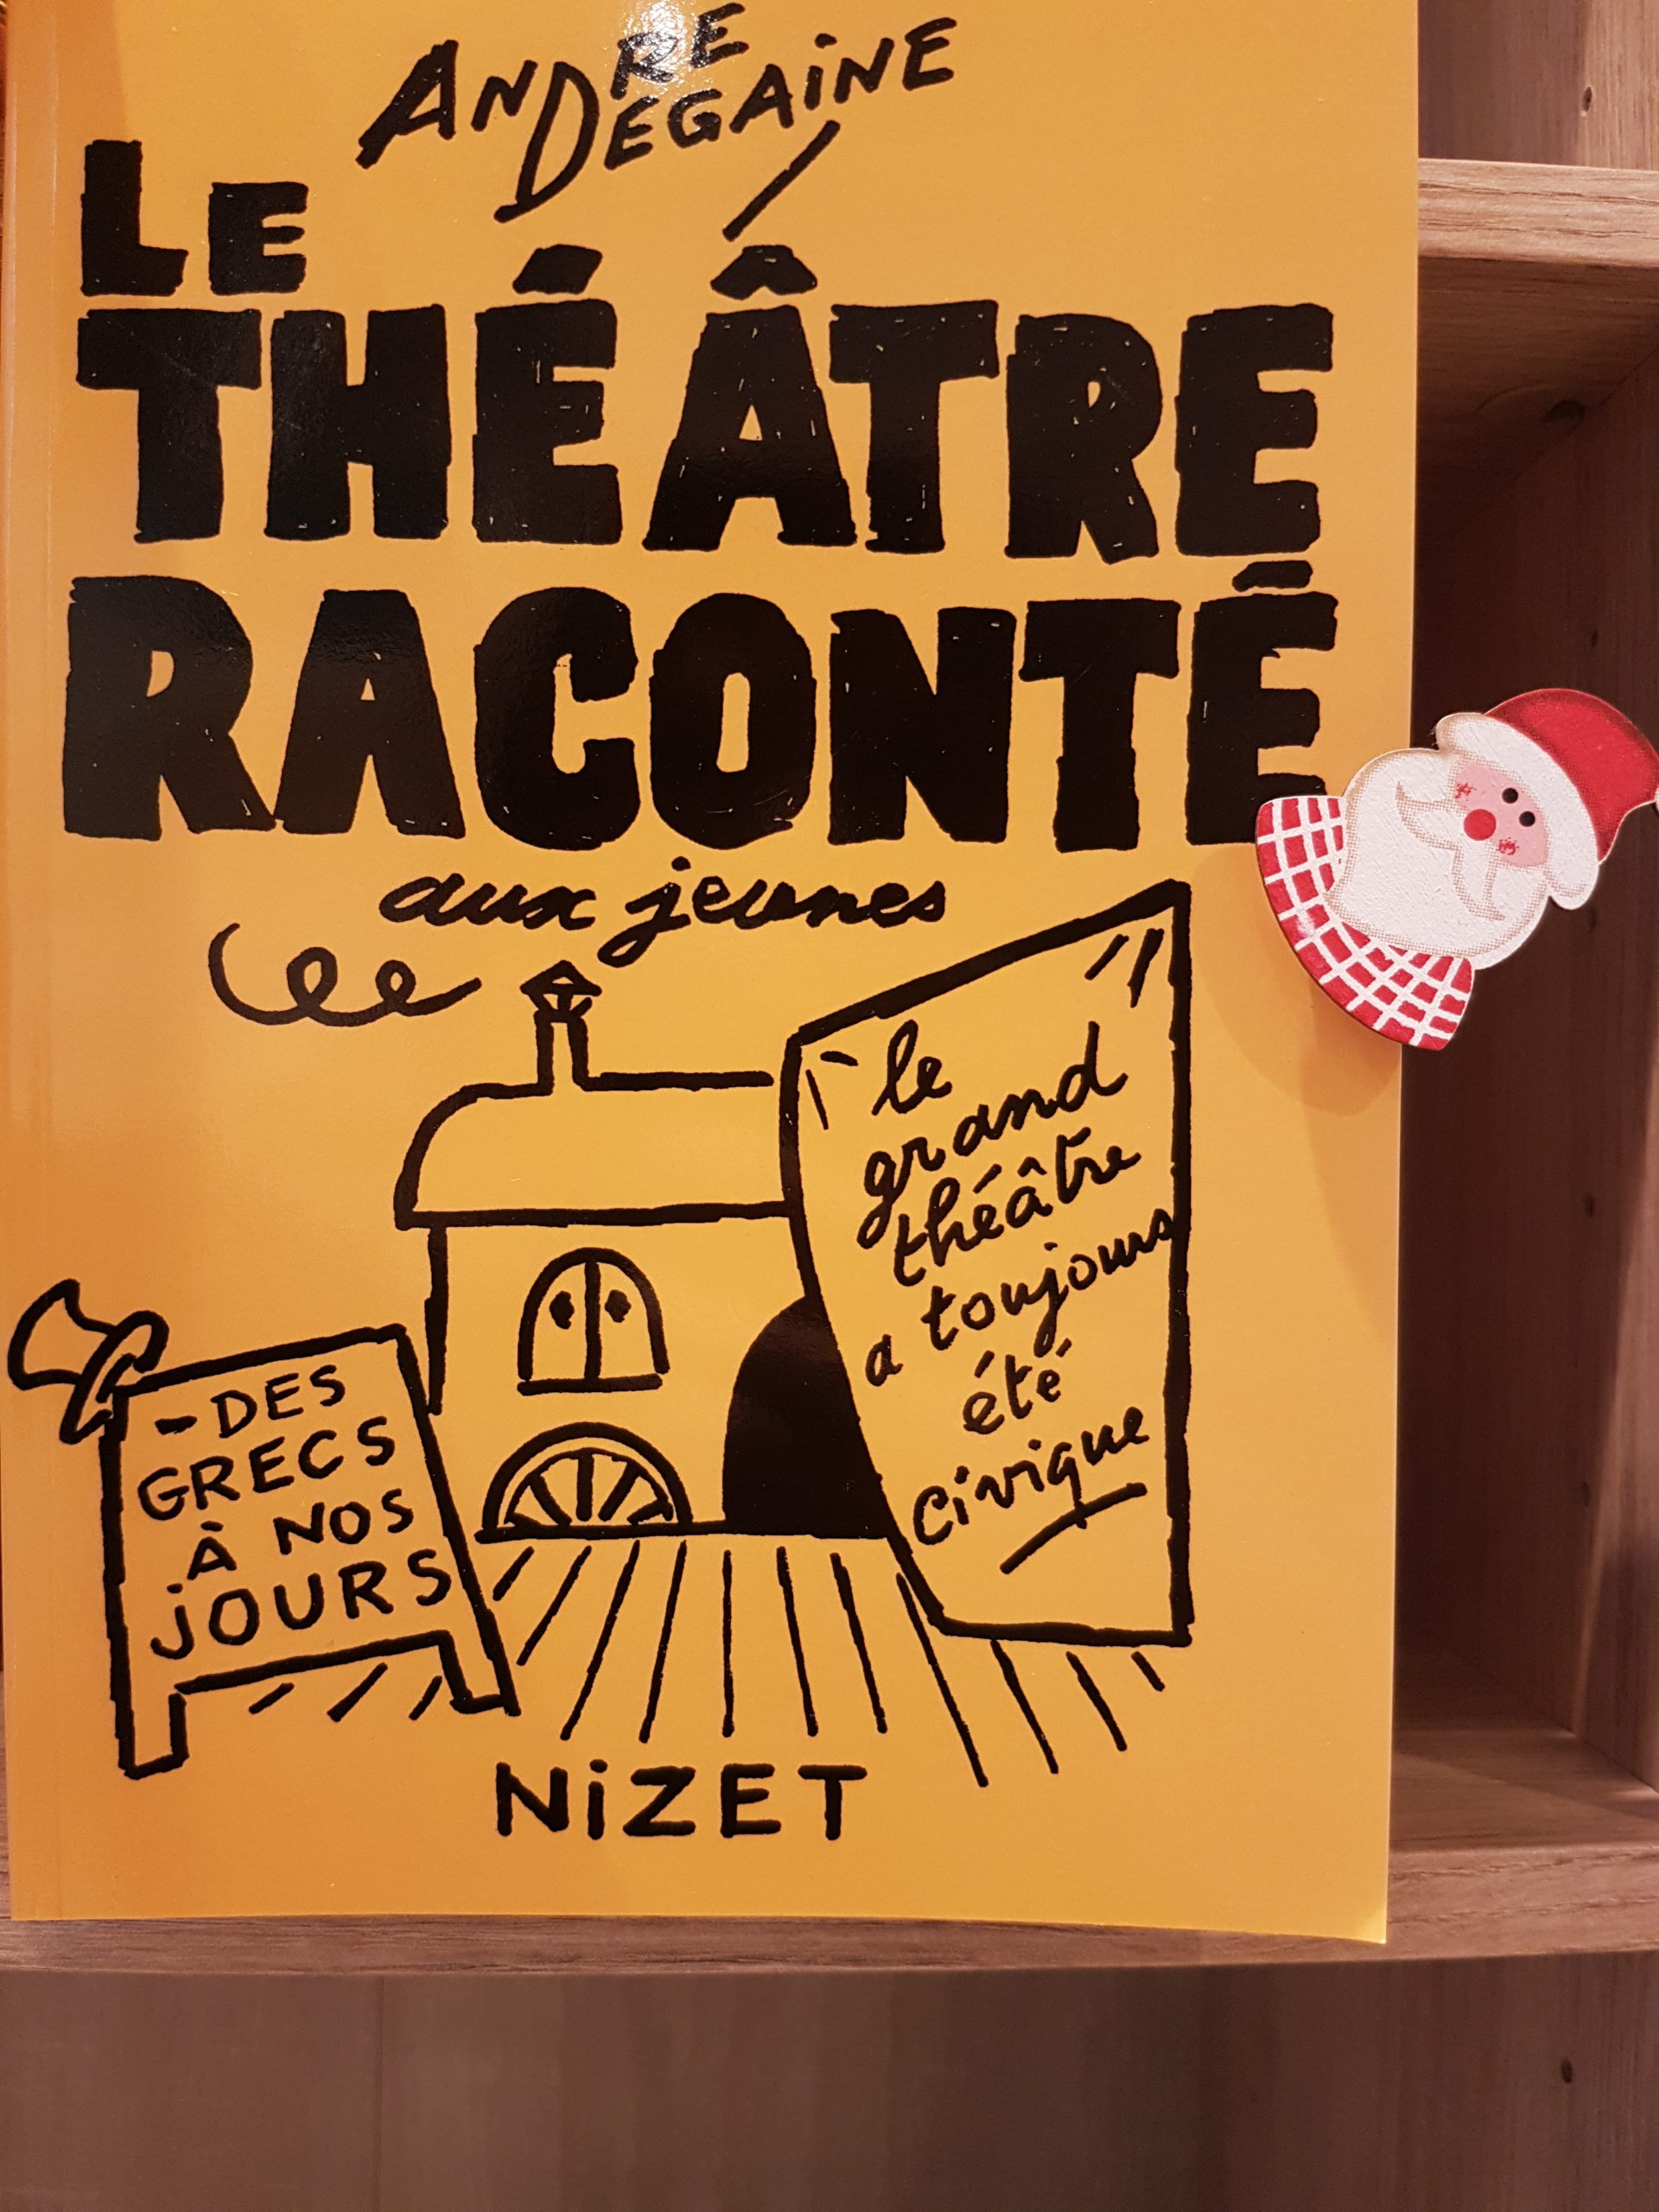 ANDRE
DEGAINE
LE
THÉÂTRE
RACONTÉ
aux jeunes
le
grand
théâtre
a toujours
été
civique
-DES
GRECS
À NOS
JOURS
NiZET